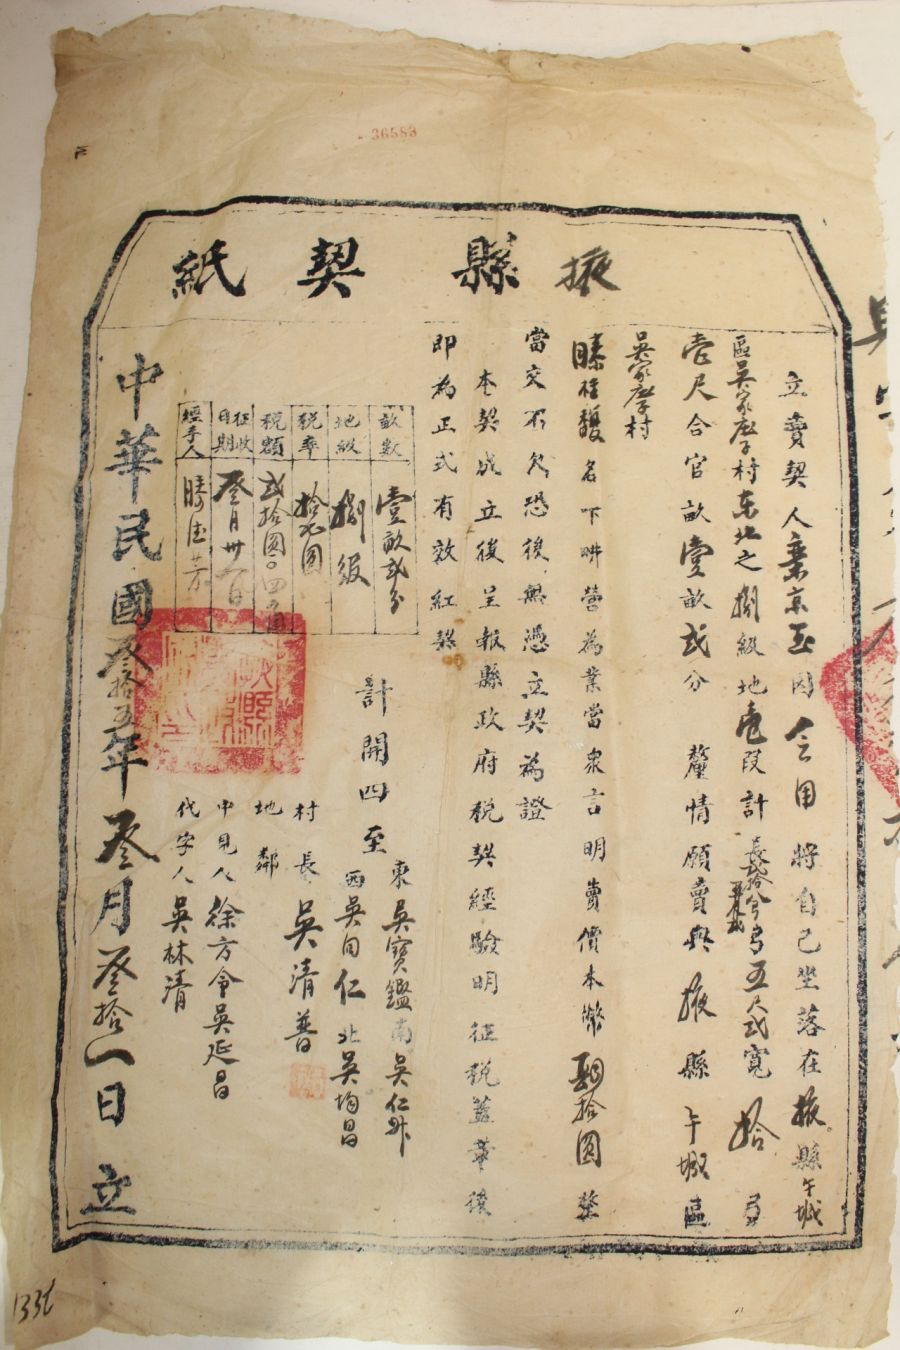 36583
掖縣契紙
立賣契人 京玉因 用將自己坐落在掖縣午城
區吳家庄子村东北之捌級地壱段計長弍拾 弓五尺弍寬拾弓
壱尺合官畝壹畝弍分 釐情願賣與掖縣午城區
吳家庄子村
滕桂馥名下畊營為業當衆言明賣價本幣 拾圆整
當交不欠恐後無憑立契為證
本契成立後呈報縣政府稅契經驗明征稅蓋章後
即為正式有效紅契
畝數 壹畝弍分
地級 捌級
稅率 拾 圆
稅額 弍拾圆〇四角
征收日期 叄月卅一日
經手人 滕 芳
計開四至
東吳寶鑑南吳仁
西吳同仁北吳均昌
村長 吳清普
地鄰
中見人 徐方令吳延昌
代字人 吳林清
中華民國叄拾五年叄月叄拾一日立